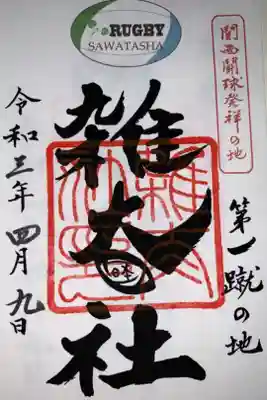 RUGBY
SAWATASHA
関西闘球発祥の地
第一蹴の地
雑太社
令和三年 四月九日